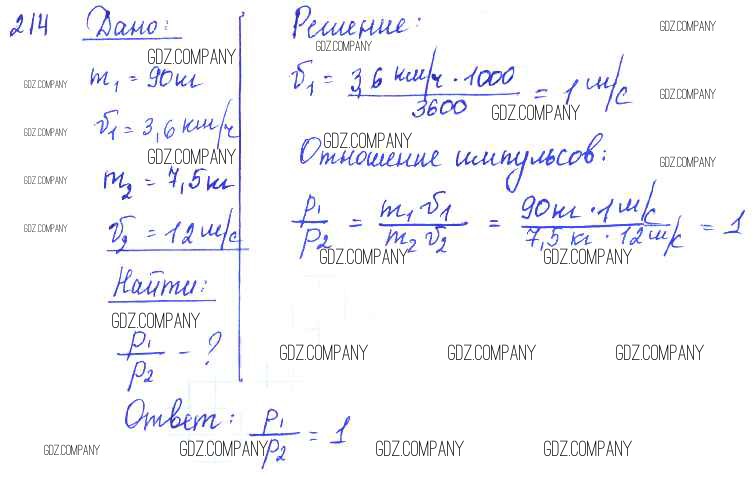 214 Дано:
GDZ.COMPANY
m₁ = 90 кг
GDZ.COMPANY
v₁ = 3,6 км/ч
GDZ.COMPANY
GDZ.COMPANY
m₂ = 7,5 кг
GDZ.COMPANY
v₂ = 12 м/с
GDZ.COMPANY
Найти:
GDZ.COMPANY
p₁/p₂ - ?
Решение:
GDZ.COMPANY
GDZ.COMPANY
v₁ = 3,6 км/ч · 1000 / 3600 = 1 м/с
GDZ.COMPANY
GDZ.COMPANY
GDZ.COMPANY
Отношение импульсов:
GDZ.COMPANY
p₁/p₂ = m₁v₁ / m₂v₂ = 90 кг · 1 м/с / 7,5 кг · 12 м/с = 1
GDZ.COMPANY GDZ.COMPANY
GDZ.COMPANY GDZ.COMPANY GDZ.COMPANY
Ответ: p₁/p₂ = 1
GDZ.COMPANY GDZ.COMPANY GDZ.COMPANY GDZ.COMPANY